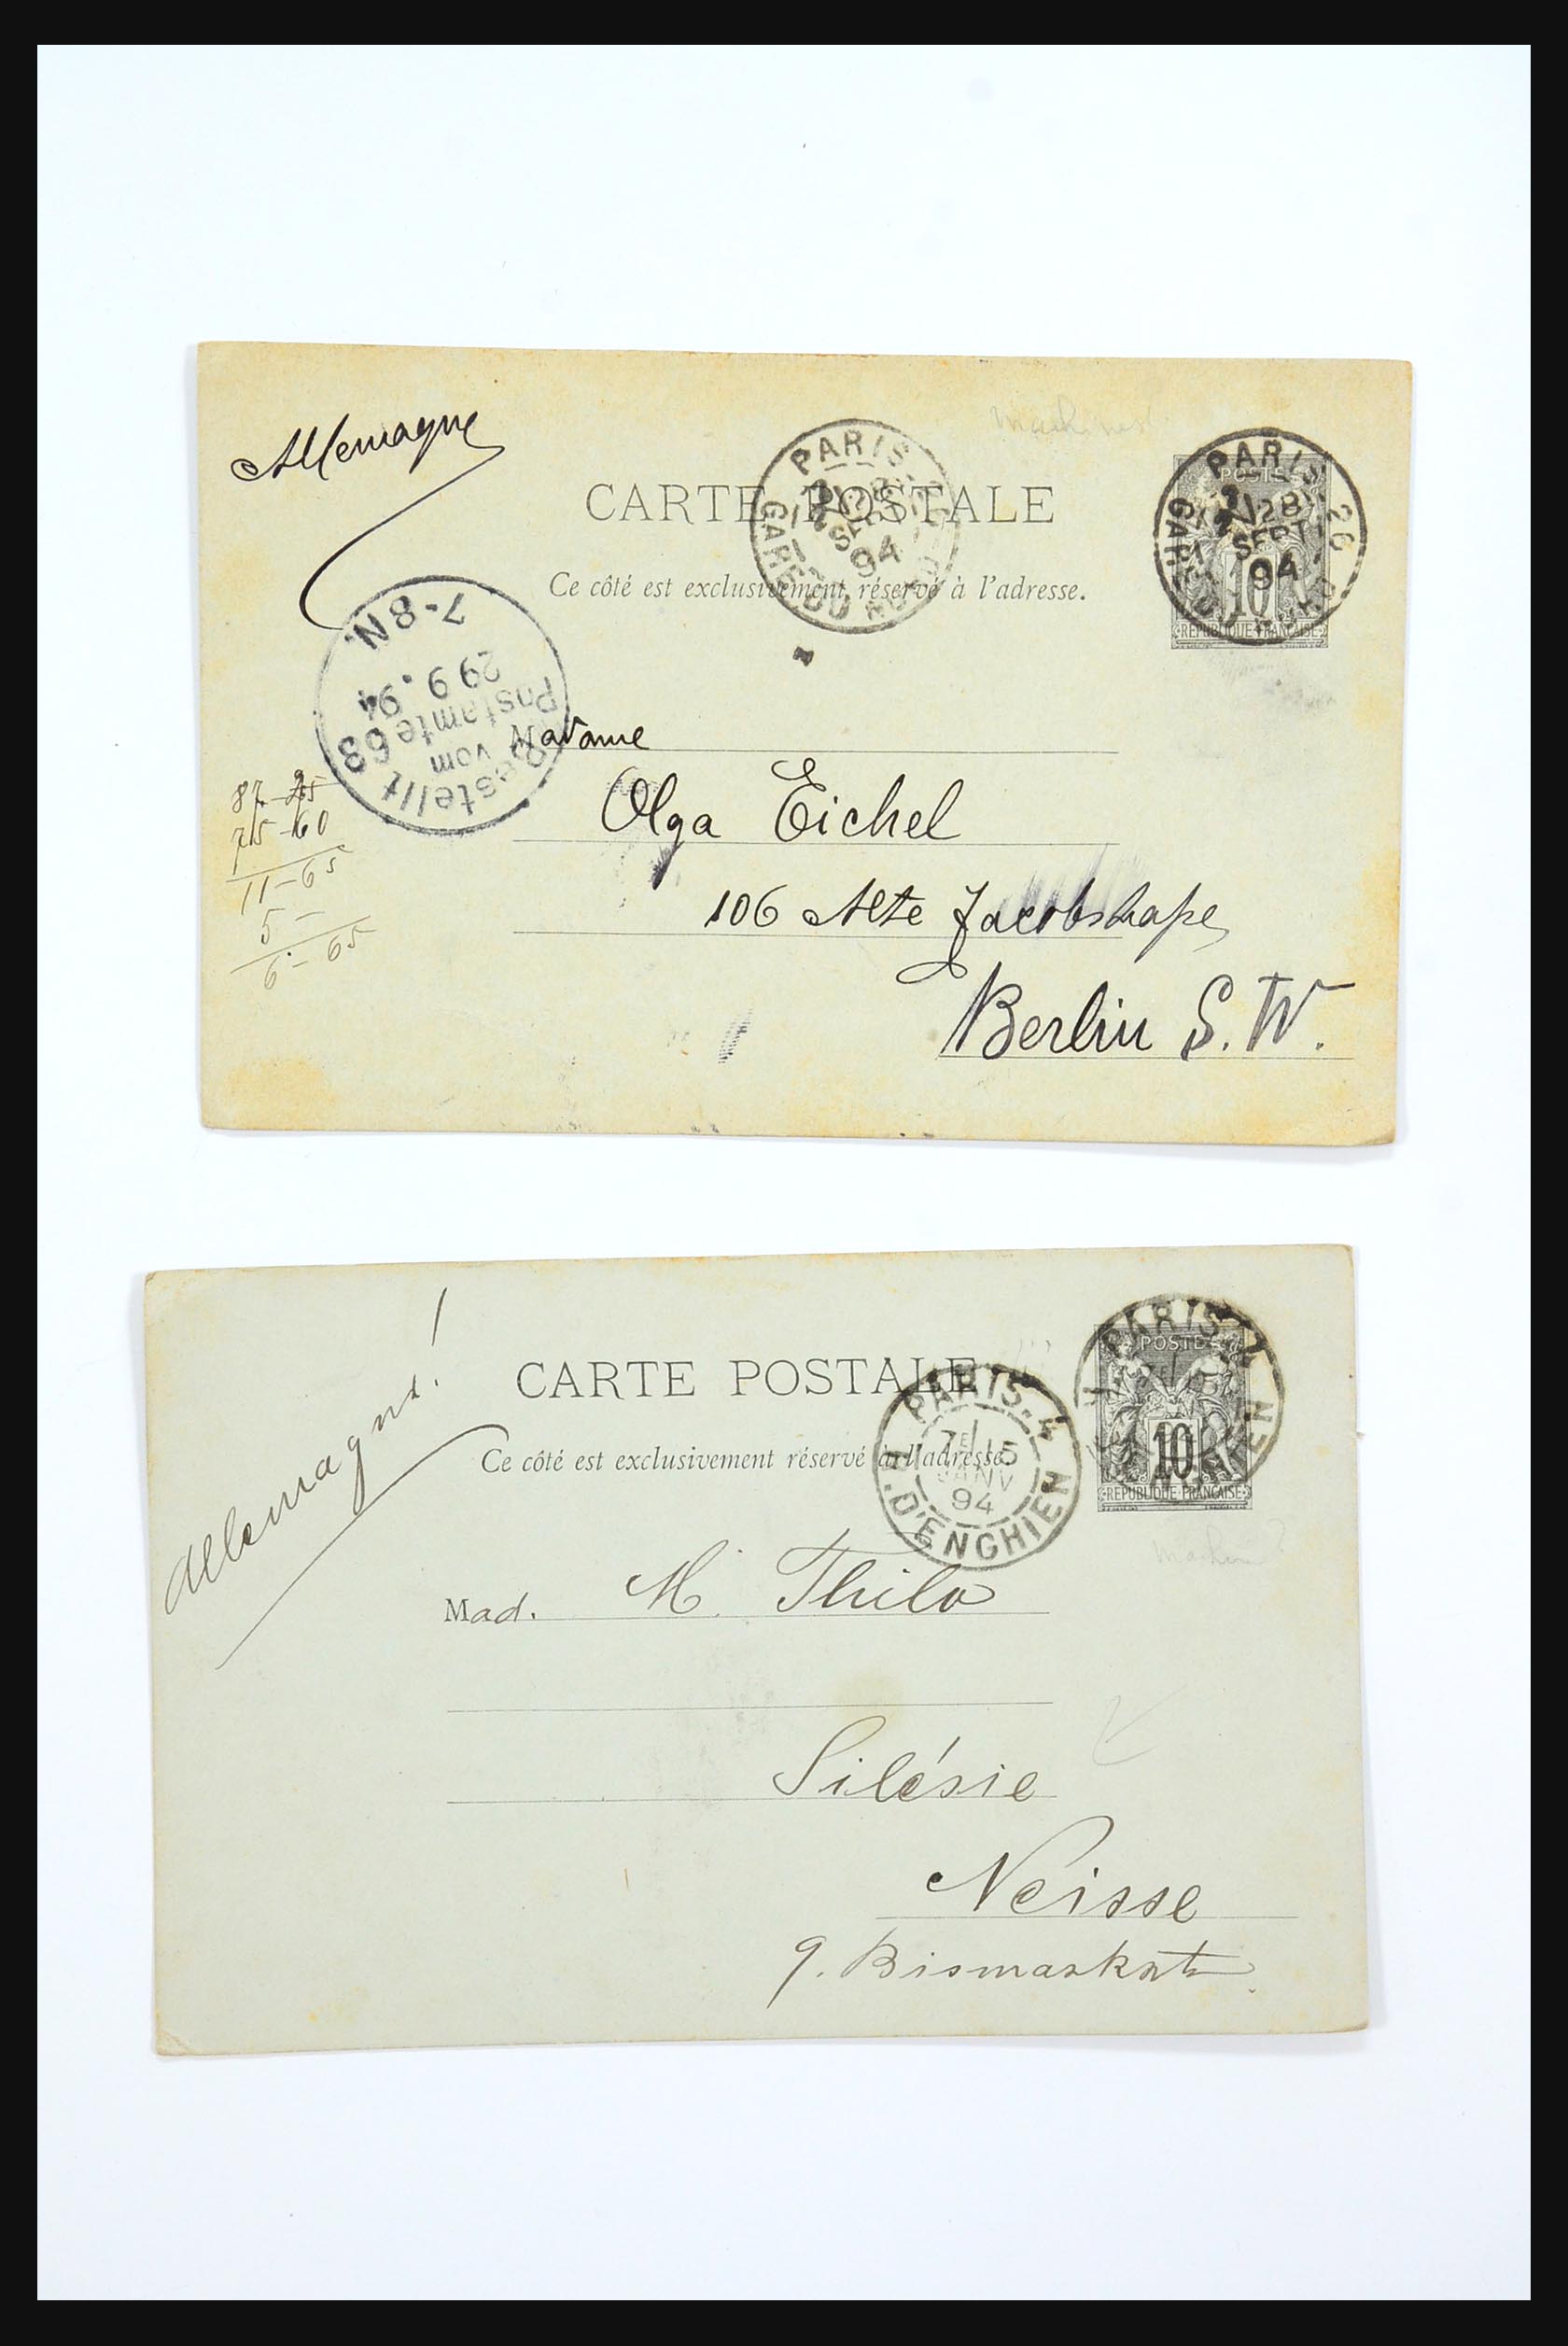 Allemagne
machines!
CARTE POSTALE
Ce côté est exclusivement réservé à l'adresse.
PARIS
28
SEPT
94
GARE DU NORD
PARIS 26
28
SEPT
94
GARE DU NORD
POSTES
10
REPUBLIQUE FRANÇAISE
7-8N.
29 9. 94
Bestellt
vom
Postamte 68
Madame
Olga Eichel
106 Alte Jacobstraße
Berlin S. W.
87-25
75-60
11-65
5-
6-65
Allemagne!
CARTE POSTALE
Ce côté est exclusivement réservé à l'adresse.
PARIS-4
7E 15
JANV
94
R. D'ENGHIEN
PARIS
7E
ENGHIEN
POSTES
10
REPUBLIQUE FRANÇAISE
Mad. M. Thilo
Silésie
Neisse
9. Bismarkst